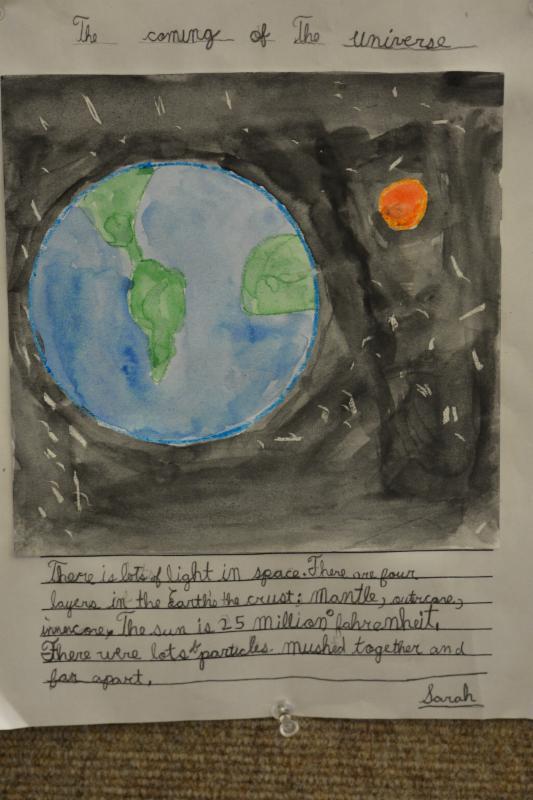 The coming of The universe
There is lots of light in space. There are four
layers in the Earth: the crust: Mantle, outercore,
innercore, The sun is 25 million° fahrenheit.
There were lots of particles mushed together and
far apart.
Sarah